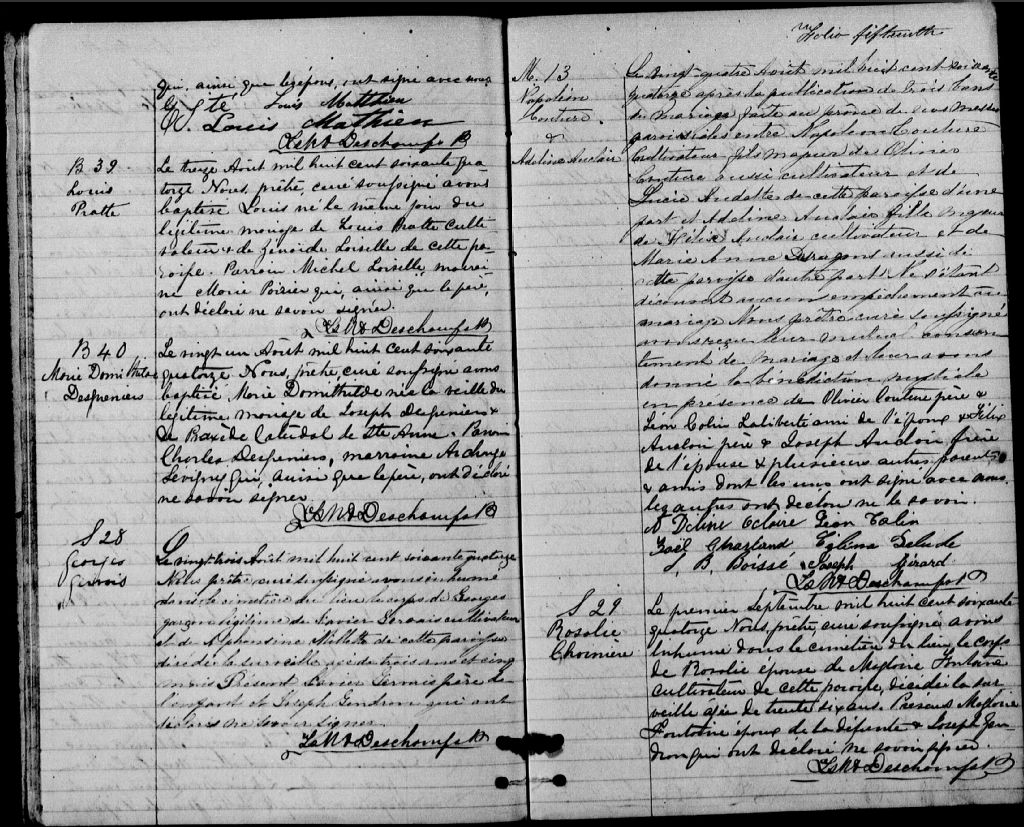 qui, ainsi que l'époux, ont signé avec nous
E. S. te Louis Matthieu
Louis Mathieu
Ls Nd Deschamps Ptr
B 39
Louis
Pratte
Le treize Août mil huit cent soixante qua
torze Nous, prêtre, curé soussigné avons
baptisé Louis né le même jour du
légitime mariage de Louis Pratte Culti
vateur & de Zénoïde Loiselle de cette pa
roisse. Parrain Michel Loiselle, marrai
ne Marie Poirier qui, ainsi que le père,
ont déclaré ne savoir signer.
Ls Nd Deschamps Ptr
B 40
Marie Domithilde
Desgreniers
Le vingt un Août mil huit cent soixante
quatorze Nous, prêtre, curé soussigné avons
baptisé Marie Domithilde née la veille du
légitime mariage de Joseph Desgreniers &
de de Ste Anne. Parrain
Charles Desgreniers, marraine
Lévigny qui, ainsi que le père, ont déclaré
ne savoir signer
Ls Nd Deschamps Ptr
S 28
Georges
Gervais
Le vingt trois Août mil huit cent soixante quatorze
Nous prêtre curé soussigné avons inhumé
dans le cimetière du lieu le corps de Georges
garçon légitime de Xavier Gervais cultivateur
et de Alphonsine Millette de cette paroisse
décédé la surveille agé de trois ans et cinq
mois Présent Xavier Gervais père de
l'enfant et Joseph Gendron qui ont
déclaré ne savoir signer
Ls Nd Deschamps Ptr
Folio fifteenth
M. 13
Napoléon
Couture
&
Adeline Auclair
Le vingt-quatre Août mil huit cent soixante
quatorze après la publication de trois bans
de mariage faite au prône de nos messes
paroissiales entre Napoléon Couture
Cultivateur fils majeur de Olivier
Couture aussi cultivateur et de
Lucie Audette de cette paroisse d'une
part et Adeline Auclair fille majeure
de Félix Auclair cultivateur et de
Marie Anne aussi de
cette paroisse d'autre part Ne s'étant
découvert aucun empêchement au
mariage Nous prêtre curé soussigné
avons reçu leur mutuel consen
tement de mariage et leur avons
donné la bénédiction nuptiale
en présence de Olivier Couture père &
Léon Colin Laliberté ami de l'époux & Félix
Auclair père & Joseph Auclair frère
de l'épouse & plusieurs autres parents
& amis dont les uns ont signé avec nous
les autres ont déclaré ne le savoir.
A Deline Eclaire Léon Colin
Gaël Chartand Eglina Gelude
J. B. Boissé Joseph Gérard
Ls Nd Deschamps Ptr
S 29
Rosalie
Choinière
Le premier Septembre mil huit cent soixante
quatorze Nous, prêtre, curé soussigné avons
Inhumé dans le cimetière du lieu le corps
de Rosalie épouse de Magloire Fontaine
cultivateur de cette paroisse, décédée la sur
veille agée de trente six ans. Présens Magloire
Fontaine époux de la défunte & Joseph Gen
dron qui ont déclaré ne savoir signer.
Ls Nd Deschamps Ptr